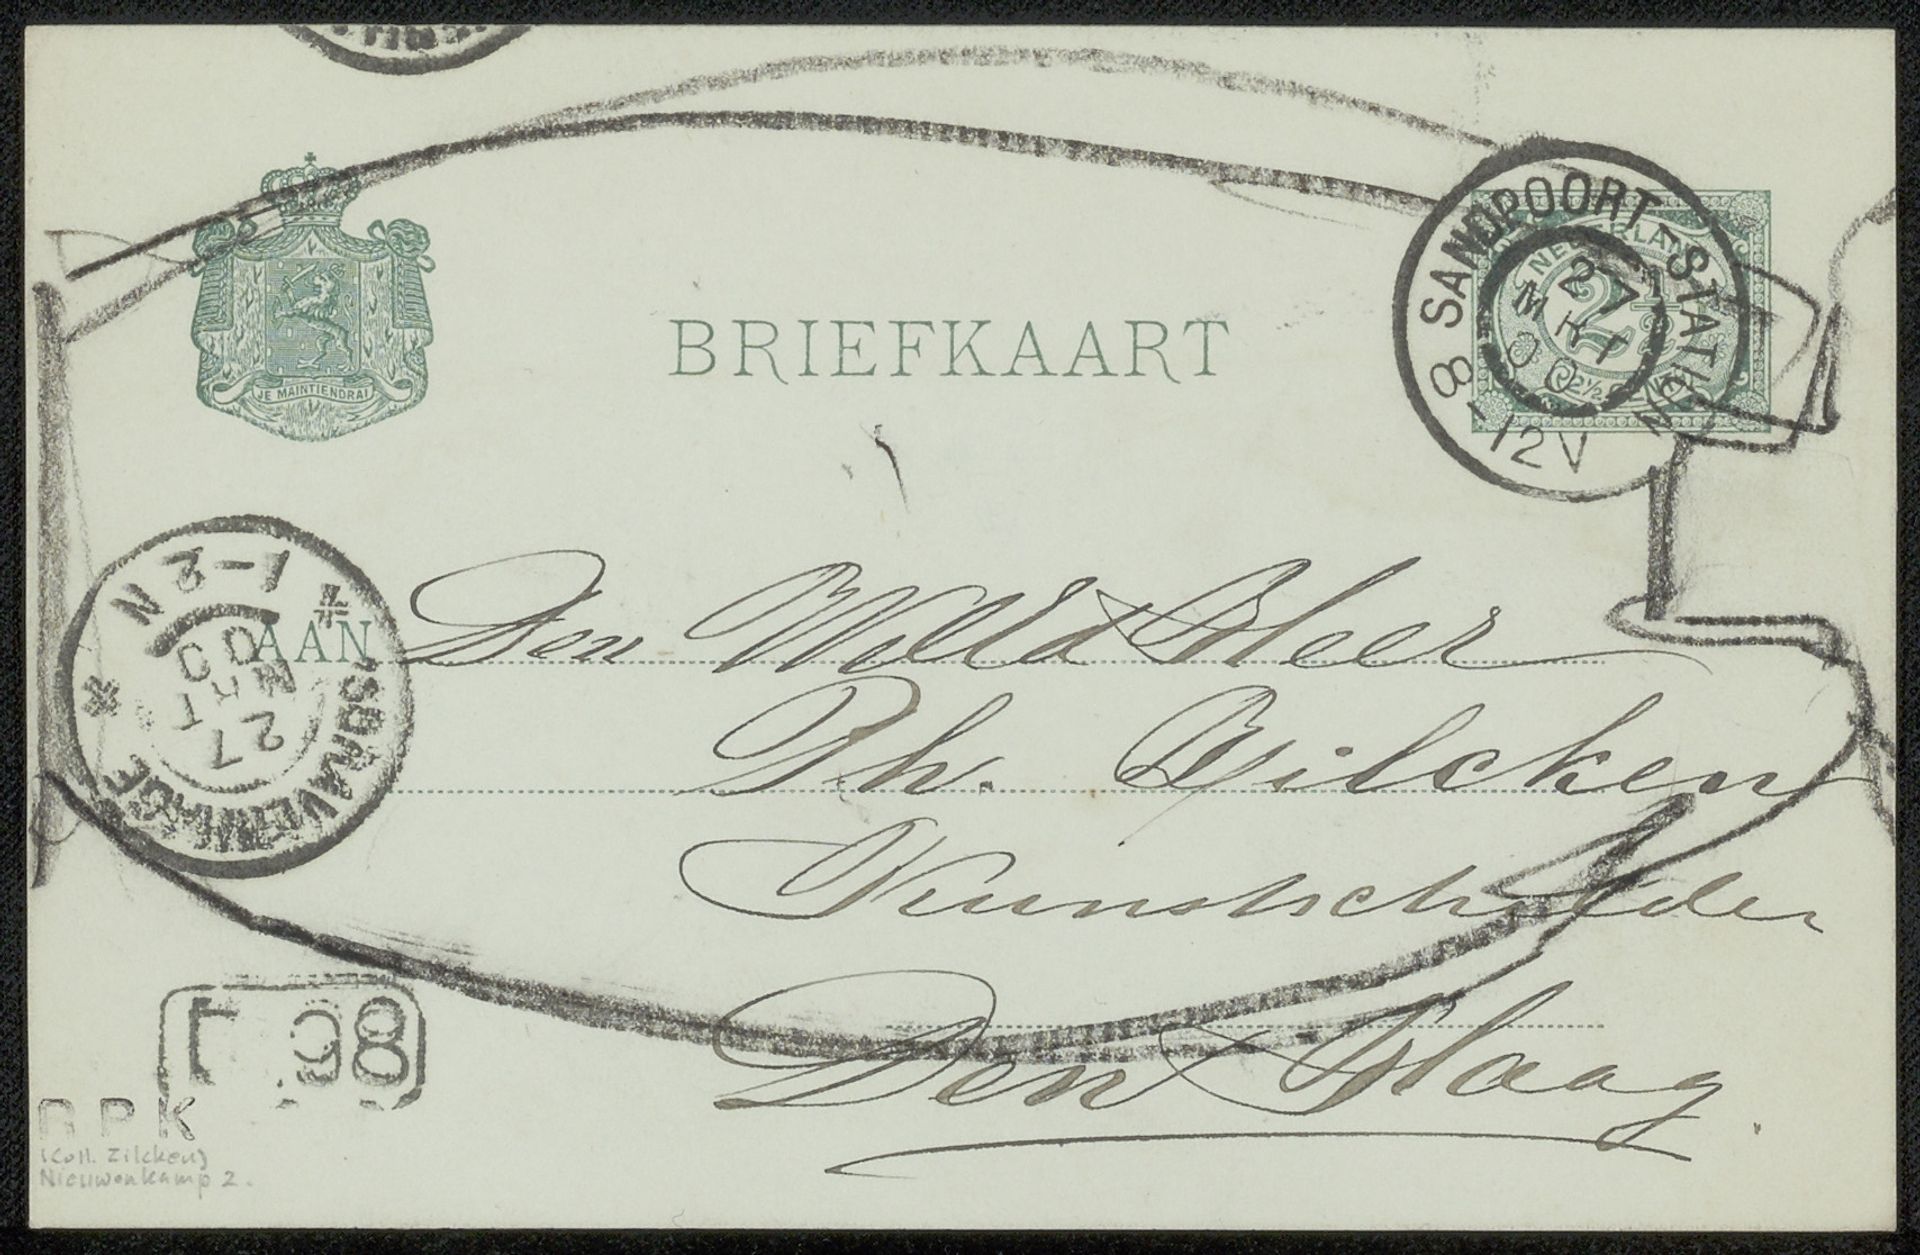 BRIEFKAART
JE MAINTIENDRAI
SANDPOORT-STATION
27
MRT
00
8-12V
NEDERLAND
2½
2½ CENT
'S GRAVENHAGE
27
MRT
00
1-2N
AAN Den WelEd Heer
Ph. Zilcken
Kunstschilder
Den Haag.
98
RPK
(Coll. Zilcken)
Nieuwenkamp 2.